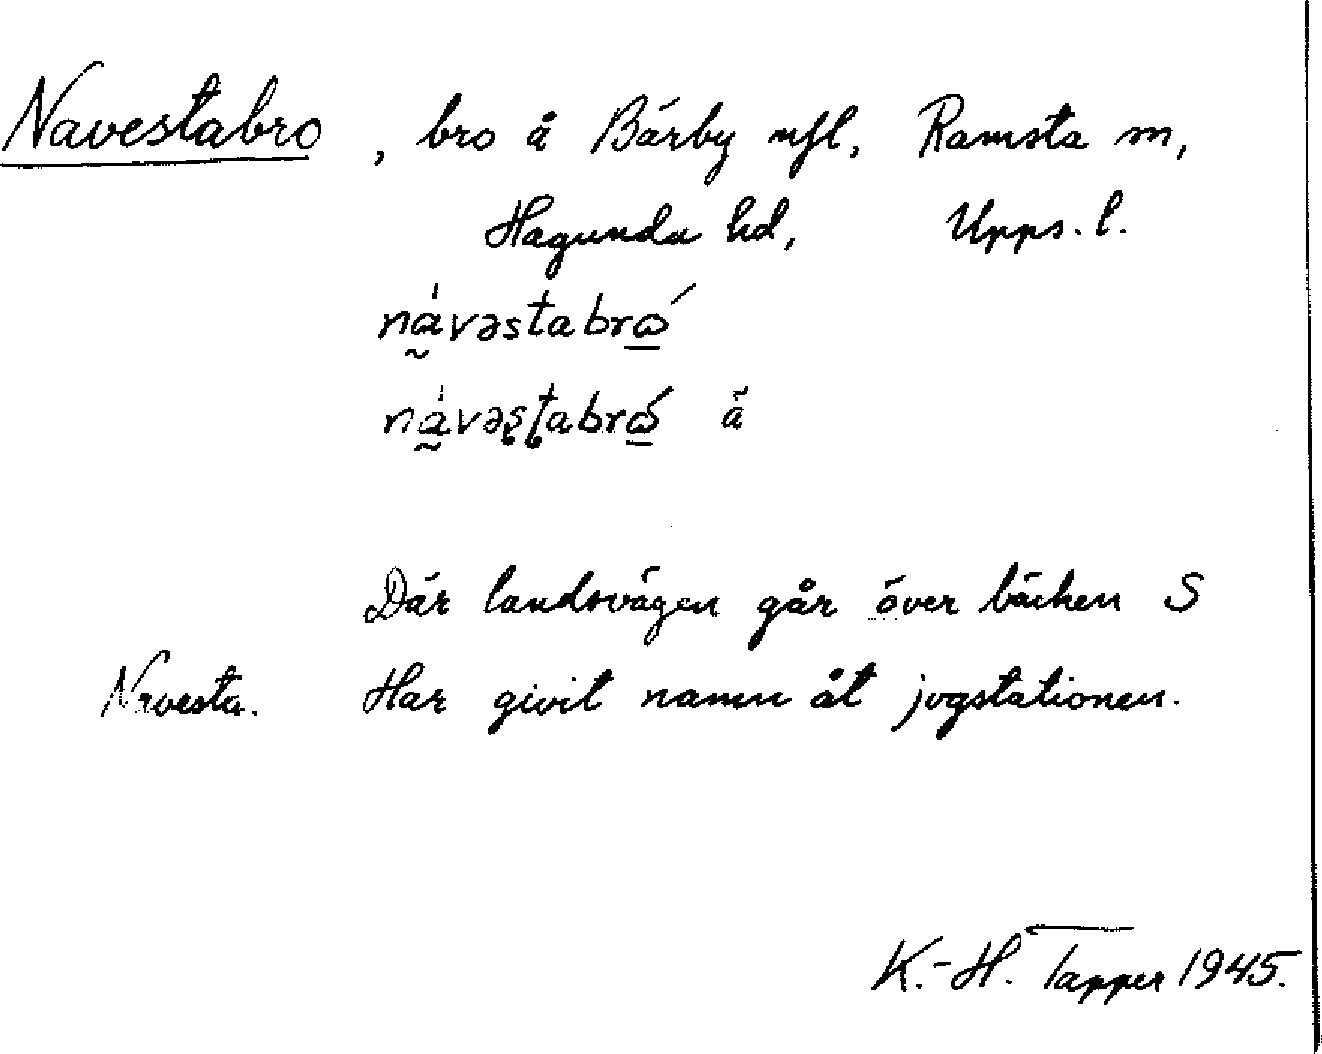 Navestabro, bro å Bärby nfl, Ramsta sn,
Hagunda hd, Upps. l.
nà̰vəstabrώ̲
nà̰vəʂʈabrώ̲ ä
Där landsvägen går över bäcken S
Navesta. Har givit namn åt jvgstationen.
K.-H. Tapper 1945.